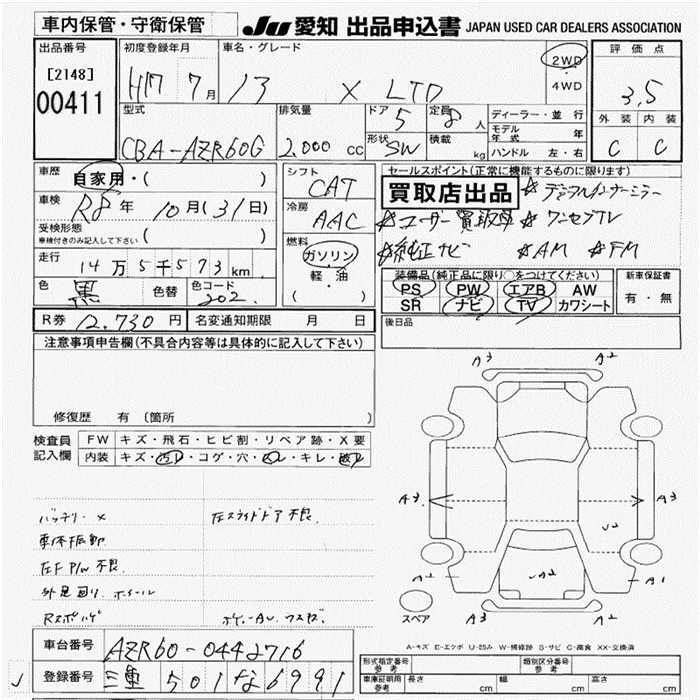 車内保管・守衛保管
JU 愛知 出品申込書 JAPAN USED CAR DEALERS ASSOCIATION
出品番号
[2148]
00411
初度登録年月
H17 7月
車名・グレード
13 X LTD
2WD
・
4WD
評価点
3.5
外装 内装
C C
型式
CBA-AZR60G
排気量
2.000 CC
ドア 5
定員 8 人
形状 SW
積載 kg
ディーラー・並行
モデル年式 年
ハンドル 左・右
車歴
自家用・( )
車検
R8年 10月(31日)
受検形態
車検付きのみ記入して下さい ( )
走行
14万5千573km
色 黒 色替 色コード 202
シフト
CAT
冷房
AAC
燃料
ガソリン
・
軽・油
( )
セールスポイント(正常に機能するものに限ります)
買取店出品 ☆デジタルインナーミラー
☆ユーザー買取車 ☆ワンセグTV
☆純正ナビ ☆AM ☆FM
装備品(純正品に限り○をつけてください)
PS PW エアB AW
SR ナビ TV カワシート
新車保証書
有・無
R券 12.730円 名変通知期限 月 日
後日品
注意事項申告欄(不具合内容等は具体的に記入して下さい)
修復歴 有 〔箇所 〕
検査員記入欄
FW キズ・飛石・ヒビ割・リペア跡・X要
内装 キズ・汚レ・コゲ・穴・スレ・キレ・破レ
バッテリーX 左スライドドア不良.
車体振動
左F P/W不良.
外足回り. ホイール
A3 A2
A3 A3
U2
A2 A2 A1
A3 A2
スペア
A-キズ E-エクボ U-凹み W-補修跡 S-サビ C-腐食 XX-交換済
車台番号 AZR60-0442716
登録番号 三重 501 な 6991
型式指定番号 参考
類別区分番号 参考
車庫証明用 参考 長さ cm 幅 cm 高さ cm